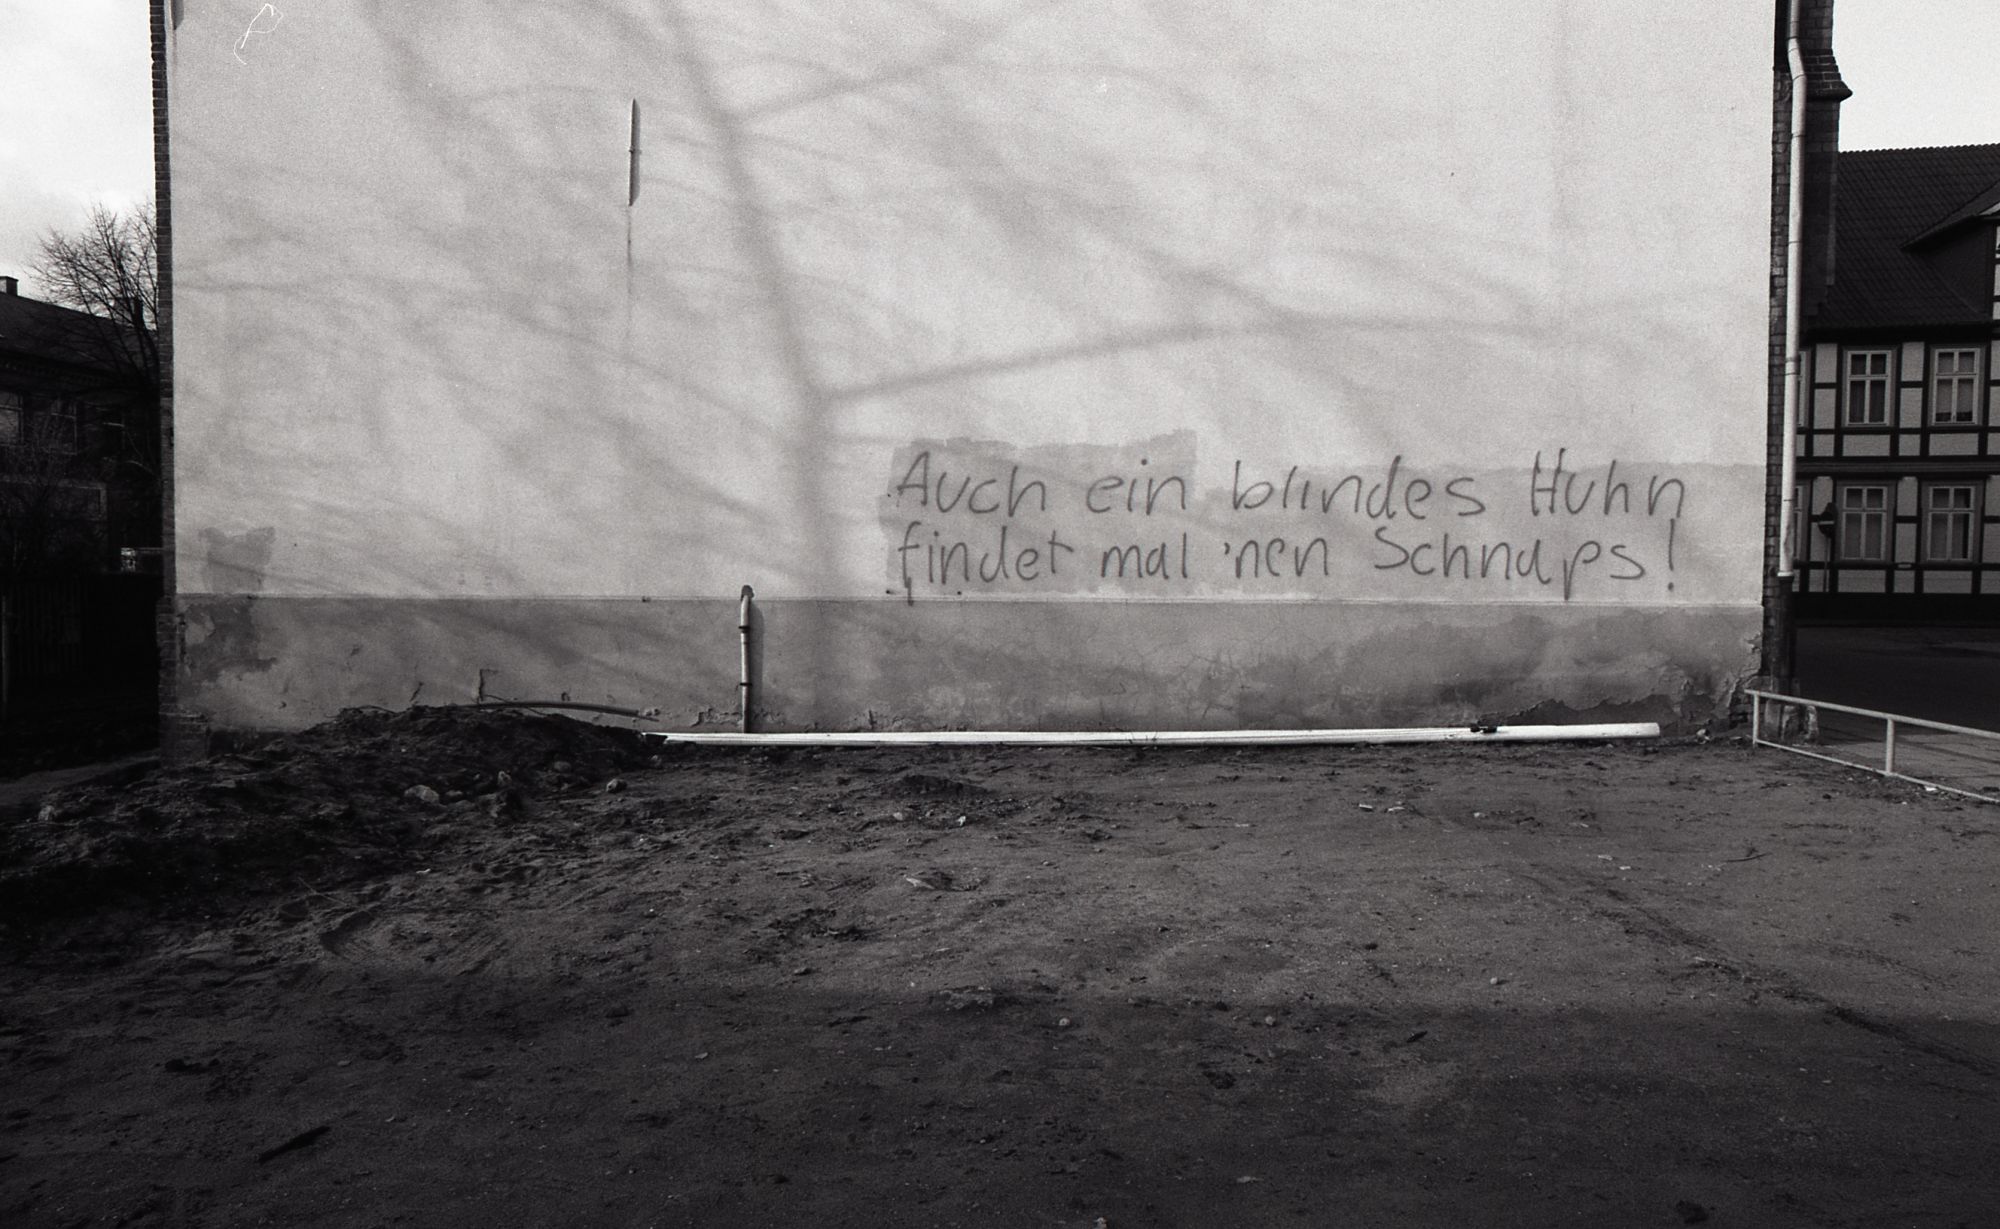 Auch ein blindes Huhn
findet mal 'nen Schnaps!